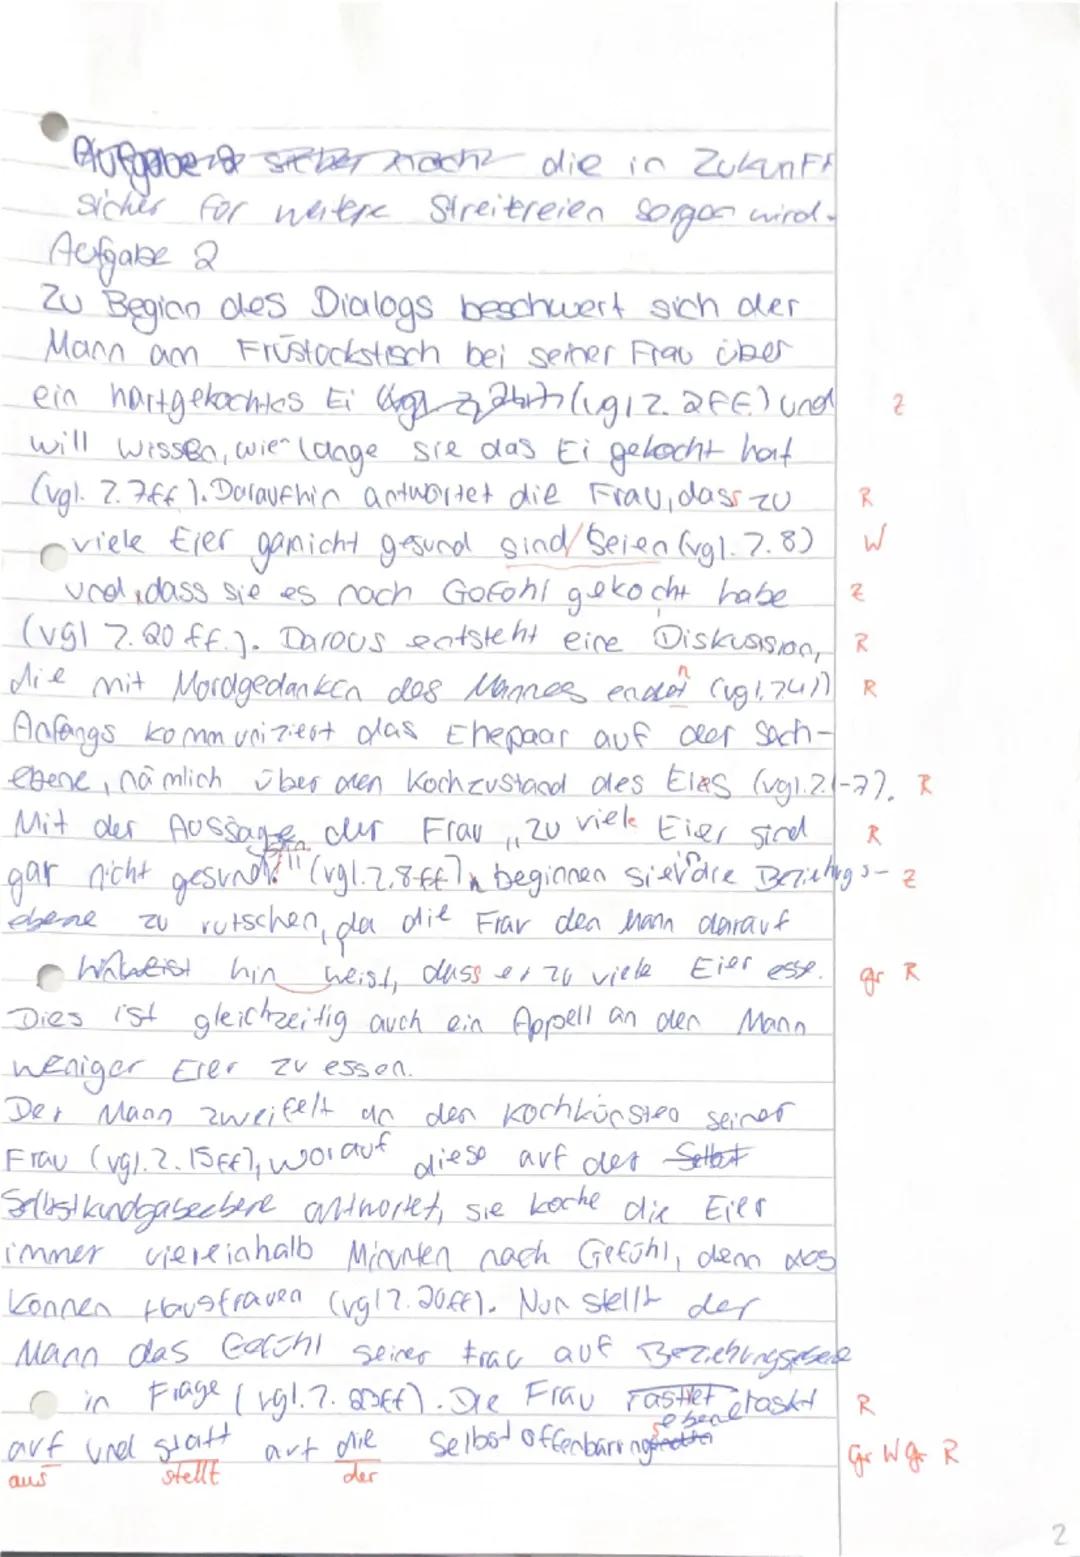 die in Zukunft
sicher für weitere Streitreien sorgen wird.
Aufgabe 2
Zu Beginn des Dialogs beschwert sich der
Mann am Früstückstisch bei seiner Frau über
ein hartgekochtes Ei (vgl Z. 2ff.) und Z
will wissen, wie lange sie das Ei gekocht hat
(vgl. Z. 7ff). Daraufhin antwortet die Frau, dass zu R
viele Eier garnicht gesund sind/seien (vgl. Z. 8) W
und, dass sie es nach Gefühl gekocht habe Z
(vgl Z. 20 ff.). Daraus entsteht eine Diskussion, R
die mit Mordgedanken des Mannes endet (vgl. Z. 41) R
Anfangs kommuniziert das Ehepaar auf der Sach-
ebene, nämlich über den Kochzustand des Eies (vgl. Z. 1-7). R
Mit der Aussage der Frau „zu viele Eier sind R
gar nicht gesund" (vgl. Z. 8ff), beginnen sie die Beziehungs- Z
ebene zu rutschen, da die Frau den Mann darauf
hin weist, dass er zu viele Eier esse. gr R
Dies ist gleichzeitig auch ein Appell an den Mann
weniger Eier zu essen.
Der Mann zweifelt an den Kochkünsten seiner
Frau (vgl. Z. 15ff), worauf diese auf der Selbst
Selbstkundgabeebene antwortet, sie koche die Eier
immer viereinhalb Minuten nach Gefühl, denn das
können Hausfrauen (vgl Z. 20ff). Nun stellt der
Mann das Gefühl seiner Frau auf Beziehungsebene
in Frage (vgl. Z. 23ff). Die Frau rastet R
auf und statt auf die Selbstoffenbarungsebene Gr W Gr R
aus stellt der
2